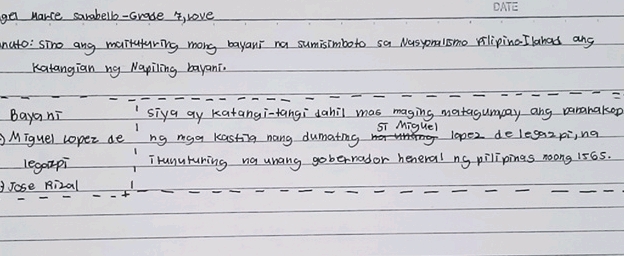 DATE
gel Marie Sarabello - Grade 7, Love
nuto: Sino ang maituturing mong bayani na sumisimbolo sa Nasyonalismo Pilipino Ilahad ang
Katangian ng Napiling bayani.
Bayani
) Miguel Lopez de
legazpi
) Jose Rizal
siya ay katangi-tangi dahil mas maging matagumpay ang pananakop
ng mga kastila nang dumating si Miguel lopez de legazpi, na
itinuturing na unang gobernador heneral ng pilipinas noong 1565.